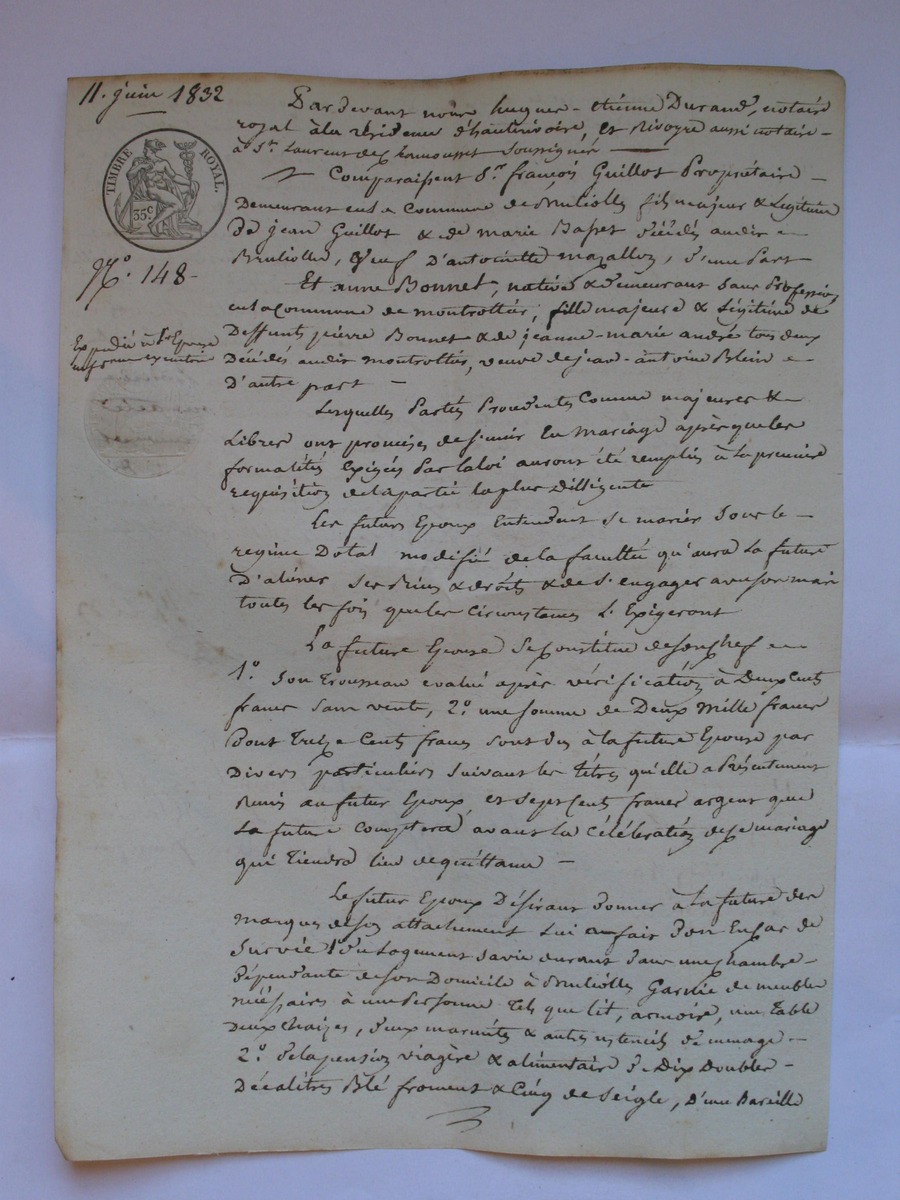 11. juin 1832
TIMBRE ROYAL.
35c
N.o 148-
Expédié à l'Epouse
en forme exécutoire
Pardevant nous hugues-étienne Durand, notaire
royal à la résidence d'hauterivoire, et Rivoyre aussi notaire -
à St. Laurent de Chamousset soussignés
Comparaissent Sr. françois Guillot Propriétaire -
Demeurant en la Commune de Brullioles fils majeur & Légitime
De jean Guillot & de marie Basset Décédés audit
Brullioles, veuf D'antoinette mazallon, D'une Part
Et anne Bonnet, native & demeurant sans Profession
en la Commune de montrottier, fille majeure & Légitime de
Deffunts pierre Bonnet & de jeanne-marie andré tous deux
Décédés audit montrottier, veuve de jean-antoine Blein
D'autre part -
Lesquelles Parties Procédantes Comme majeures &
Libres ont promises de s'unir En mariage après que les
formalités Exigées Par la loi auront été remplies à la première
requisition de la partie la plus Dilligente
Les futurs Epoux Entendent se marier sous le -
regime Dotal modifié de la faculté qu'aura La future
D'aliéner ses Biens & droits & de s'engager avec son mari
toutes les fois que les Circonstances L'Exigeront
La future Epouse se Constitue de son chef
1.o Son trousseau évalué après vérification à Deux Cents
francs sans vente, 2.o une somme de Deux Mille francs
Dont treize Cents francs sont dus à la future Epouse par
Divers particuliers suivant les Titres qu'elle a Présentement
Remis au futur Epoux, et sept Cents francs argent que
La future Comptera avant la Célébration de se mariage
qui Tiendra lieu de quittance -
Le futur Epoux Désirant donner à La future des
marques de son attachement Lui fait Don En Cas de
Survie 1.o du Logement sa vie durant dans une chambre -
Dépendante de son Domicile à Brullioles Garnie de meubles
nécéssaires à une Personne tels que lit, armoire, une table
Deux Chaizes, Deux marmites & autres ustencils de menage -
2.o De la pension viagère & alimentaire de Dix Doubles -
Décalitres Blé froment & Cinq de Seigle, D'une Bareille